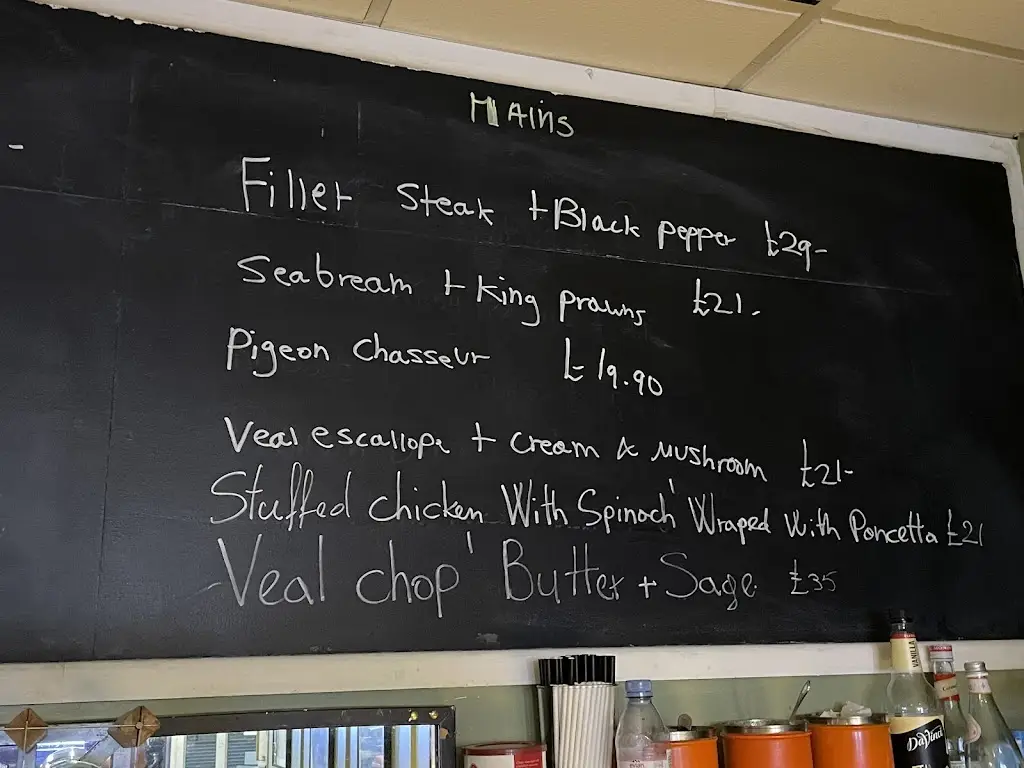 MAins
Fillet Steak + Black pepper £29-
Seabream + King prawns £21.
Pigeon Chasseur £19.90
Veal escallope + Cream & Mushroom £21-
Stuffed chicken With Spinach Wraped With Poncetta £21
Veal chop Butter + Sage £35
VANILLA
DaVinci